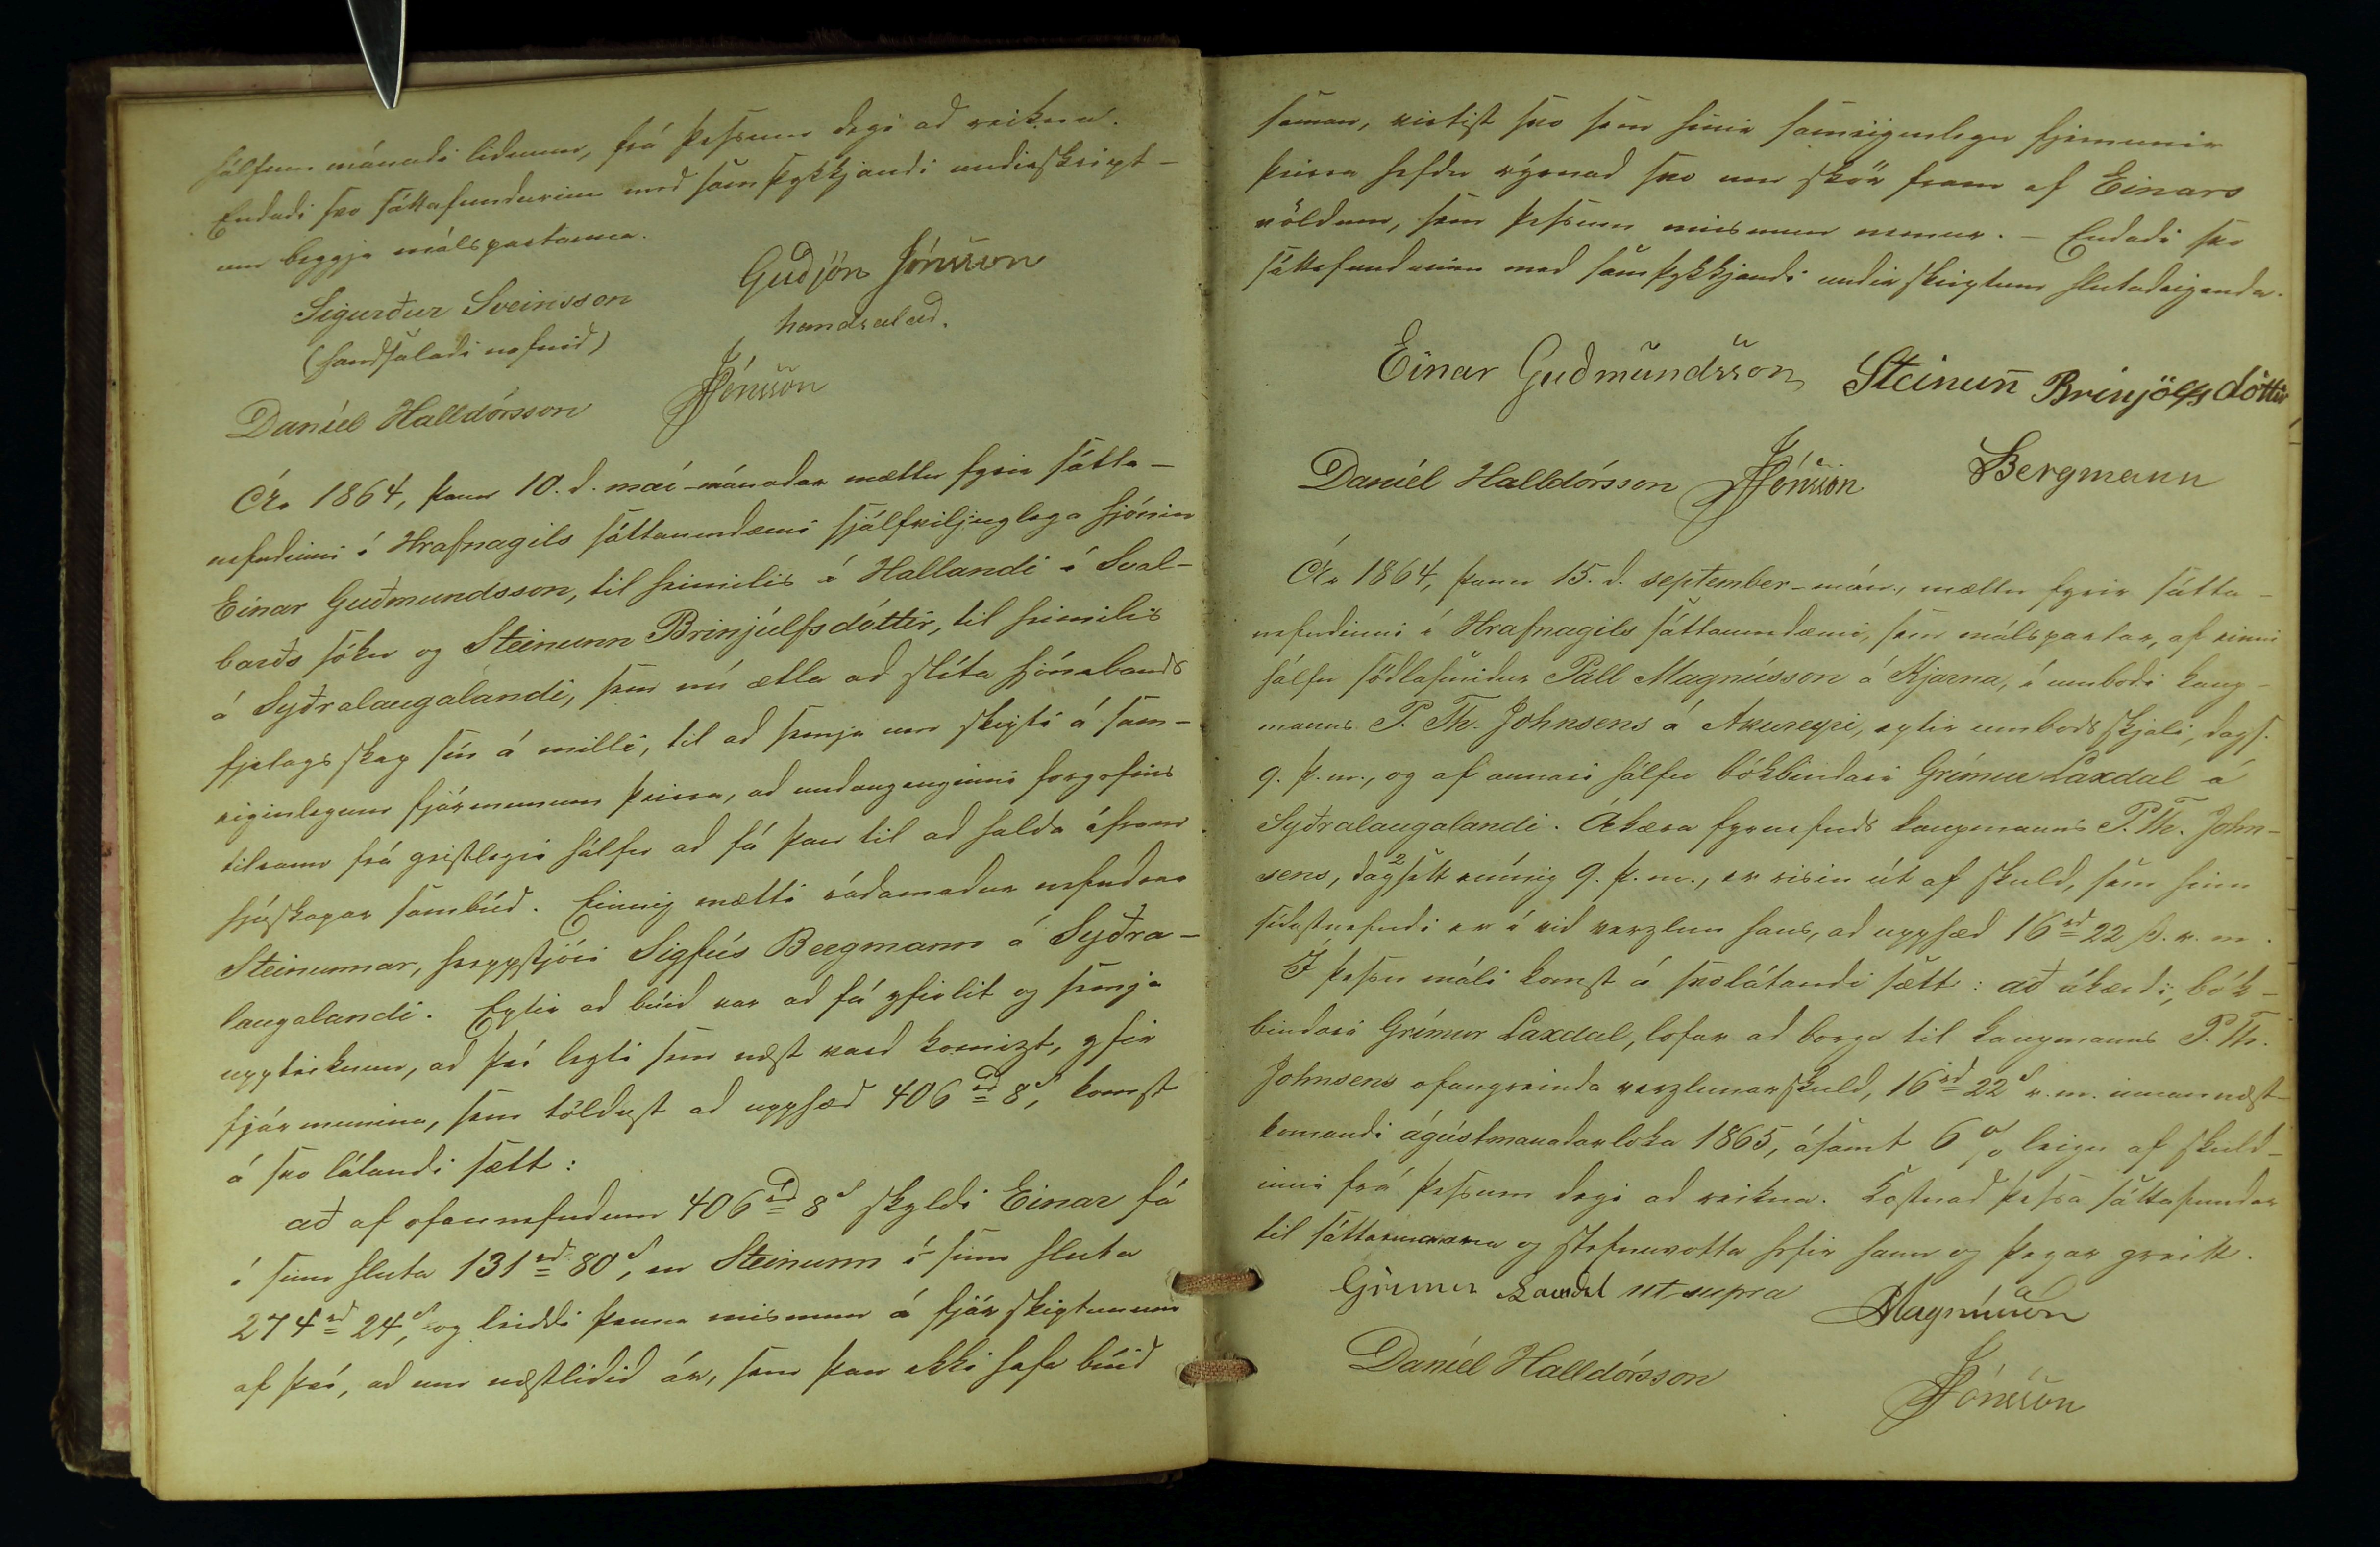 hálfum mánuði liðnum, frá þessum degi að reikna.
Endaði svo sáttafundurinn með samþykkjandi undirskript-
um beggja málspartanna.
Sigurður Sveinsson
(handsalaði nafnið)
Guðjón Jónsson
handsalað.
Daníel Halldórsson
JJónsson
Ár 1864, þann 10. d. maí-mánaðar mættu fyrir sátta-
nefndinni í Hrafnagils sáttaumdæmi sjálfviljuglega hjónin
Einar Guðmundsson, til heimilis á Hallandi í Sval-
barðs sókn og Steinunn Brinjúlfsdóttir, til heimilis
á Syðralaugalandi, sem nú ætla að slíta hjónabands
fjelagsskap sín á milli, til að semja um skipti á sam-
eiginlegum fjármunum þeirra, að undangenginni forgefins
tilraun frá geistlegri hálfu að fá þau til að halda áfram
hjúskapar sambúð. Einnig mætti ráðamaður nefndrar
Steinunnar, hreppstjóri Sigfús Bergmann á Syðra-
laugalandi. Eptir að búið var að fá yfirlit og semja
uppteiknun, að því leyti sem næst varð komizt, yfir
fjármunina, sem töldust að upphæð 406 rd 8 s, komst
á svo látandi sætt:
að af ofannefndum 406 rd 8 s skyldi Einar fá
í sinn hluta 131 rd 80 s, en Steinunn í sinn hluta
274 rd 24 s, og leiddi þenna mismun á fjárskiptunum
af því, að um næstliðið ár, sem þau ekki hafa búið
saman, virtist svo sem hinir sameiginlegu fjemunir
þeirra hefðu rýrnað svo um skör fram af Einars
völdum, sem þessum mismun nemur. – Endaði svo
sáttafundurinn með samþykkjandi undirskriptum hlutaðeigenda.
Einar Guðmundsson
Steinun Brinjölfsdóttir
Daníel Halldórsson
JJónsson
Bergmann
Ár 1864, þann 15. d. september-mán., mættu fyrir sátta-
nefndinni í Hrafnagils sáttaumdæmi, sem málspartar, af einni
hálfu söðlasmiður Páll Magnússon á Kjarna, í umboði kaup-
manns P. Th. Johnsens á Akureyri, eptir umboðsskjali, dags.
9. þ. m., og af annari hálfu bókbindari Grímur Laxdal á
Syðralaugalandi. Ákæra fyrnefnds kaupmanns P. Th. John-
sens, dagsett einnig 9. þ. m., er risin út af skuld, sem hinn
síðastnefndi er í við verzlun hans, að upphæð 16 rd 22 s. r. m.
Í þessu máli komst á svolátandi sætt: að ákærði, bók-
bindari Grímur Laxdal, lofar að borga til kaupmanns P. Th.
Johnsens ofangreinda verzlunarskuld, 16 rd 22 s r. m. innan næst-
komandi ágústmanaðarloka 1865, ásamt 6 % leigu af skuld-
inni frá þessum degi að reikna. Kostnað þessa sáttafundar
til sáttamanna og stefnuvotta hefir hann og þegar greitt.
Grímur Laxdal ut supra
Magnússon
Daníel Halldórsson
JJónsson